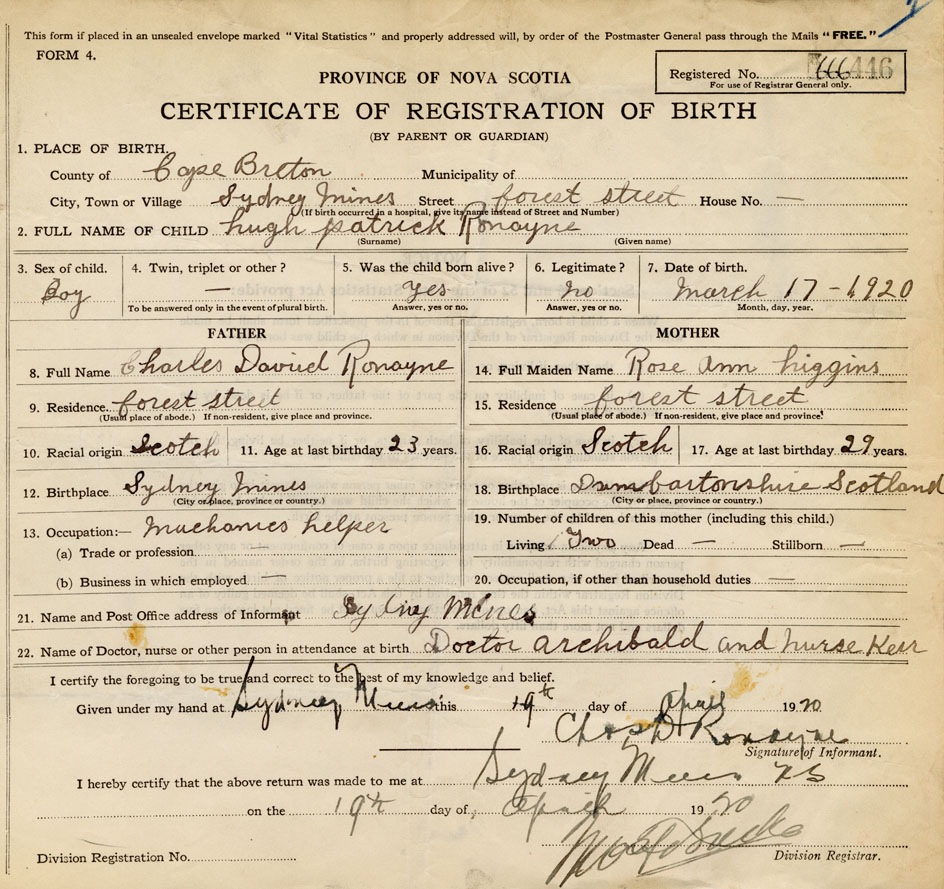 This form if placed in an unsealed envelope marked "Vital Statistics" and properly addressed will, by order of the Postmaster General pass through the Mails "FREE."
FORM 4.
PROVINCE OF NOVA SCOTIA
Registered No. 446
For use of Registrar General only.
CERTIFICATE OF REGISTRATION OF BIRTH
(BY PARENT OR GUARDIAN)
1. PLACE OF BIRTH.
County of Cape Breton Municipality of
City, Town or Village Sydney Mines Street forest street House No. —
(If birth occurred in a hospital, give its name instead of Street and Number)
2. FULL NAME OF CHILD hugh patrick Ronayne
(Surname) (Given name)
3. Sex of child. 4. Twin, triplet or other? 5. Was the child born alive? 6. Legitimate? 7. Date of birth.
Boy — Yes no March 17 - 1920
To be answered only in the event of plural birth. Answer, yes or no. Answer, yes or no. Month, day, year.
FATHER MOTHER
8. Full Name Charles David Ronayne 14. Full Maiden Name Rose Ann higgins
9. Residence. forest street 15. Residence forest street
(Usual place of abode.) If non-resident, give place and province. (Usual place of abode.) If non-resident, give place and province.
10. Racial origin Scotch 11. Age at last birthday 23 years. 16. Racial origin Scotch 17. Age at last birthday 29 years.
12. Birthplace Sydney mines 18. Birthplace Dumbartonshire Scotland
(City or place, province or country.) (City or place, province or country.)
13. Occupation:— Muchanics helper 19. Number of children of this mother (including this child.)
(a) Trade or profession — Living Two Dead — Stillborn —
(b) Business in which employed — 20. Occupation, if other than household duties —
21. Name and Post Office address of Informant Sydney Mines
22. Name of Doctor, nurse or other person in attendance at birth Doctor archibald and nurse Kerr
I certify the foregoing to be true and correct to the best of my knowledge and belief.
Given under my hand at Sydney Mines this 19th day of April 1920
Chas D Ronayne
Signature of Informant.
I hereby certify that the above return was made to me at Sydney Mines NS
on the 19th day of April 1920
Division Registration No. Division Registrar.